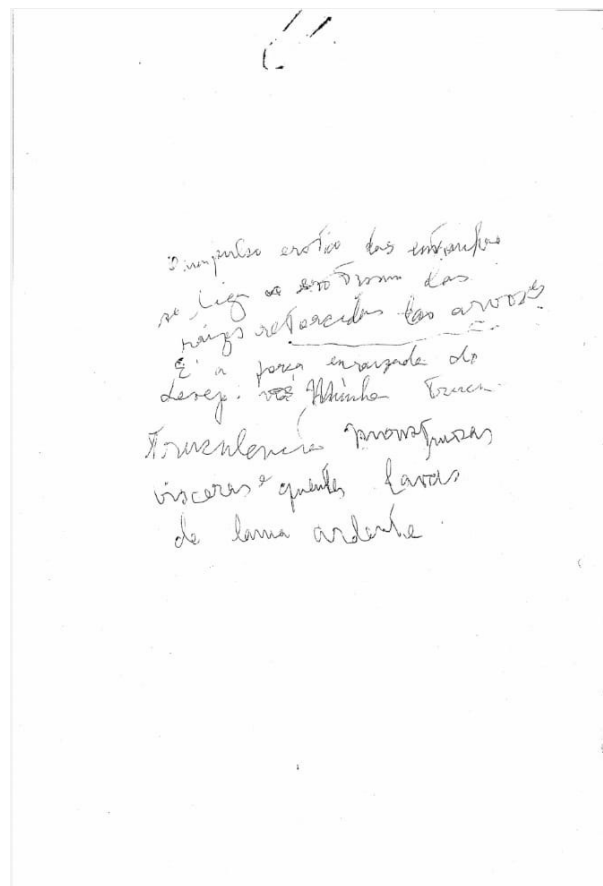 O impulso erotico das entranhas
se liga ao erotismo das
raizes retorcidas das arvores
É a força enraizada do
desejo. Minha Trucu
Truculencia monstruosas
visceras e quentes lavas
de lama ardente.